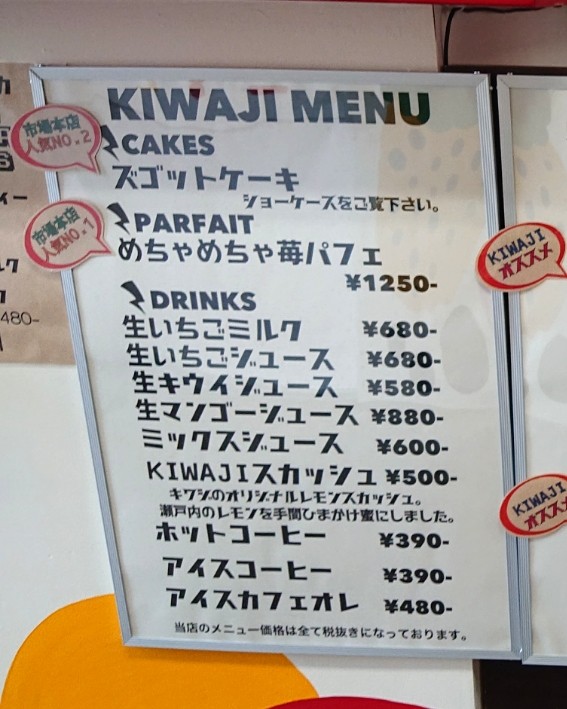 KIWAJI MENU
市場本店
人気NO.2
CAKES
ズゴットケーキ
ショーケースをご覧下さい。
市場本店
人気NO.1
PARFAIT
めちゃめちゃ苺パフェ
¥1250-
DRINKS
生いちごミルク ¥680-
生いちごジュース ¥680-
生キウイジュース ¥580-
生マンゴージュース ¥880-
ミックスジュース ¥600-
KIWAJIスカッシュ ¥500-
キワジのオリジナルレモンスカッシュ。
瀬戸内のレモンを手間ひまかけ蜜にしました。
ホットコーヒー ¥390-
アイスコーヒー ¥390-
アイスカフェオレ ¥480-
当店のメニュー価格は全て税抜きになっております。
KIWAJI
オススメ
KIWAJI
オススメ
480-